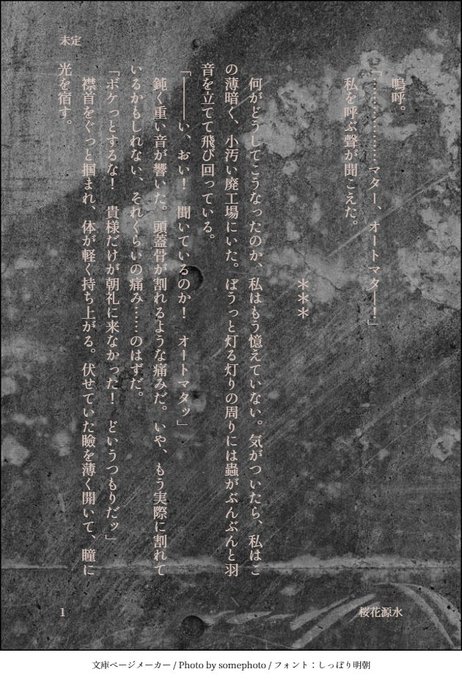 未定
嗚呼。
「……………マター、オートマター！」
私を呼ぶ聲が聞こえた。
＊＊＊
何がどうしてこうなったのか、私はもう憶えていない。気がついたら、私はこ
の薄暗く、小汚い廃工場にいた。ぼうっと灯る灯りの周りには蟲がぶんぶんと羽
音を立てて飛び回っている。
「――い、おい！　聞いているのか！　オートマタッ」
鈍く重い音が響いた。頭蓋骨が割れるような痛みだ。いや、もう実際に割れて
いるかもしれない、それくらいの痛み……のはずだ。
「ボケっとするな！　貴様だけが朝礼に来なかった！　どういうつもりだッ」
襟音をぐっと掴まれ、体が軽く持ち上がる。伏せていた瞼を薄く開いて、瞳に
光を宿す。
1
桜花源水
文庫ページメーカー / Photo by somephoto / フォント：しっぽり明朝